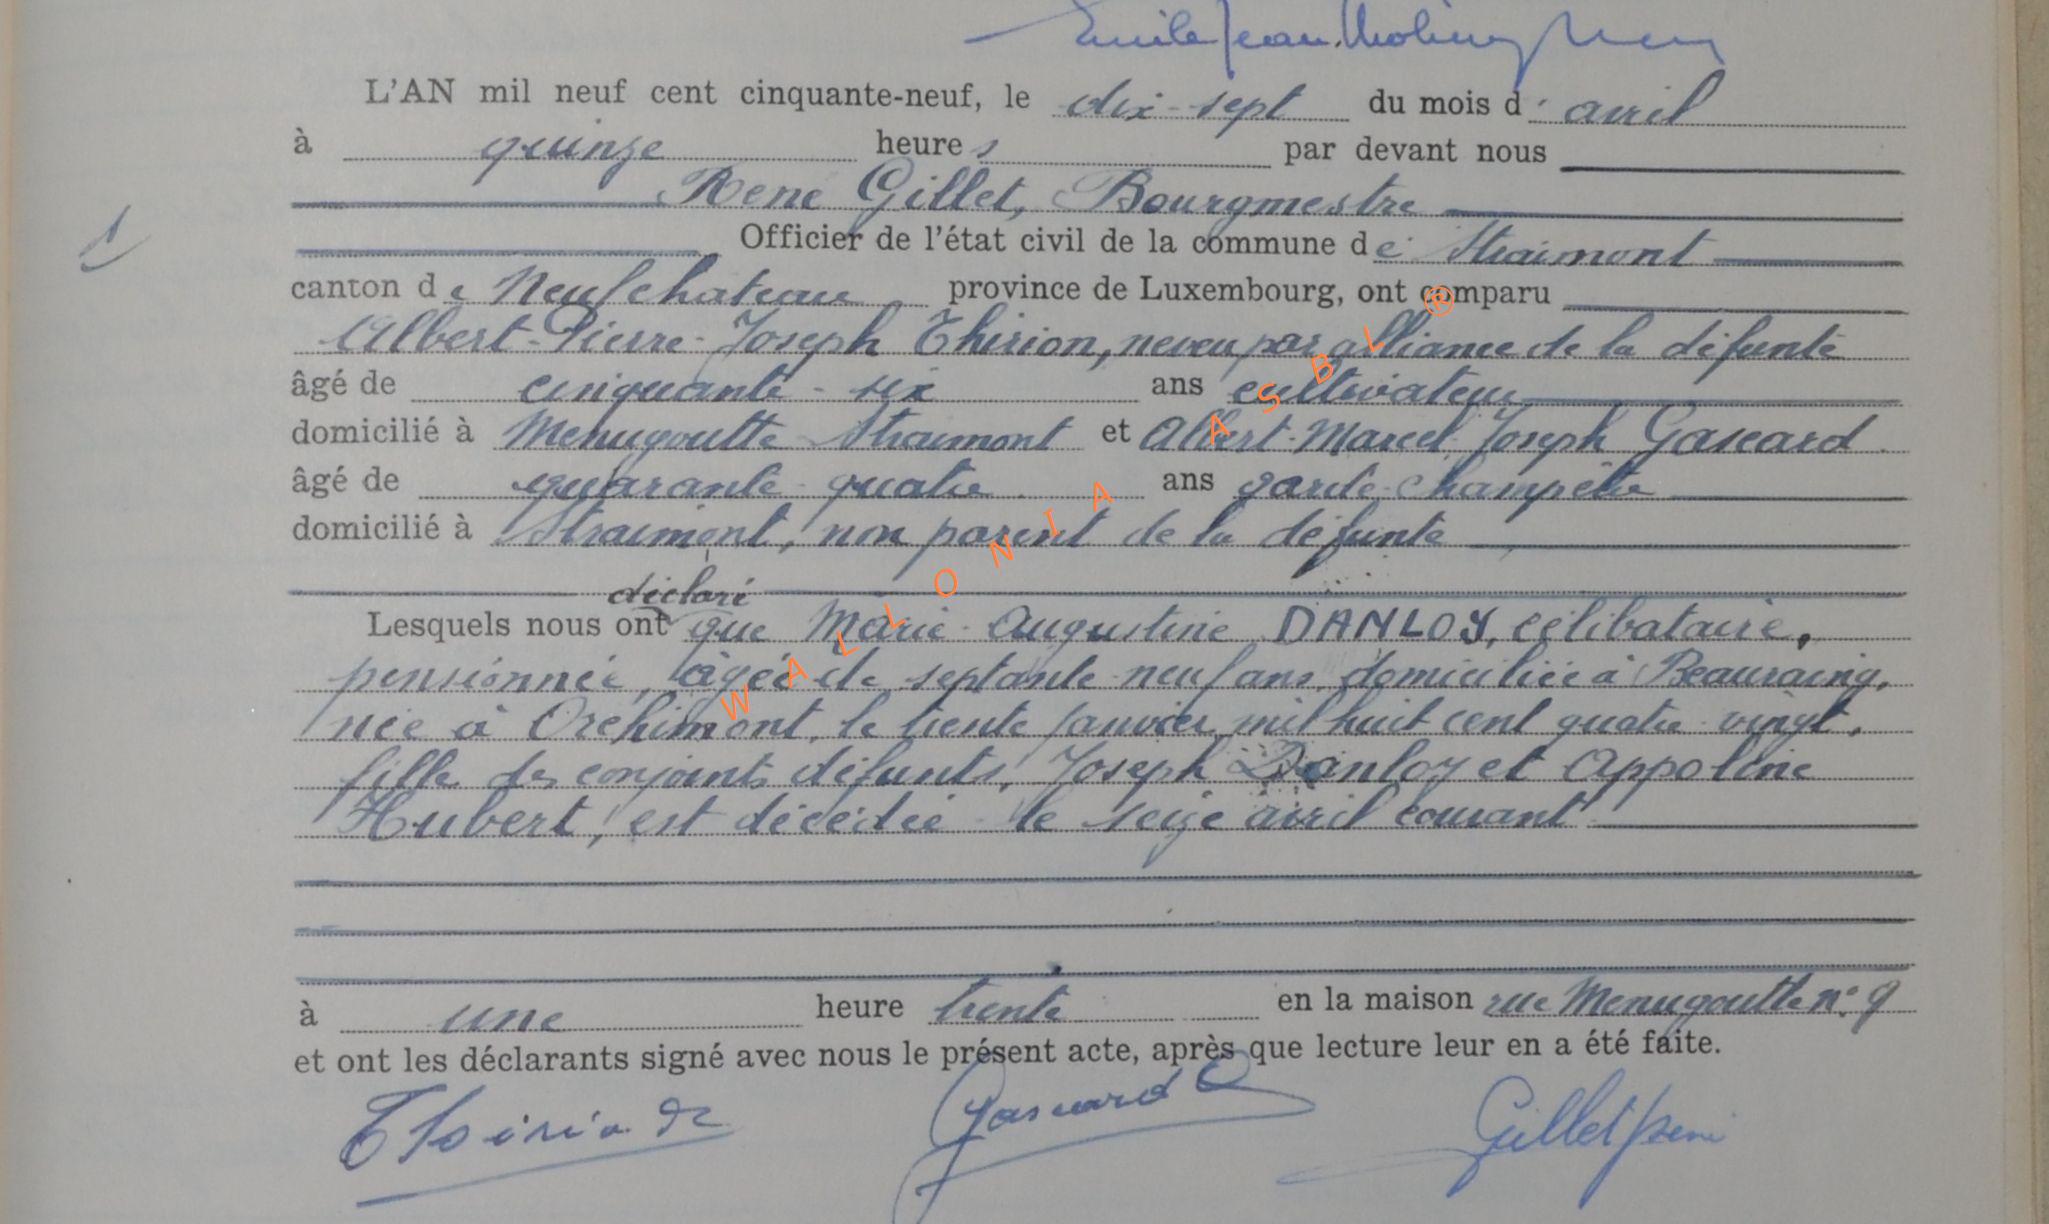 Emile Jean
L'AN mil neuf cent cinquante-neuf, le dix-sept du mois d' avril
à quinze heures par devant nous
René Gillet, Bourgmestre
Officier de l'état civil de la commune de Straimont
canton de Neufchateau province de Luxembourg, ont comparu
Albert-Pierre-Joseph Thirion, neveu par alliance de la défunte
âgé de cinquante-six ans cultivateur
domicilié à Menugoutte Straimont et Albert-Marcel-Joseph Gascard
âgé de quarante-quatre ans garde-champêtre
domicilié à Straimont, non parent de la défunte
déclaré
Lesquels nous ont que Marie-Augustine DANLOY, célibataire,
pensionnée, âgée de septante-neuf ans, domiciliée à Beauraing,
née à Orchimont, le trente janvier mil huit cent quatre-vingt,
fille des conjoints défunts, Joseph Danloy et Appoline
Hubert, est décédée le seize avril courant
à une heure trente en la maison rue Menugoutte n° 9
et ont les déclarants signé avec nous le présent acte, après que lecture leur en a été faite.
Gascard Gillet René
WALLONIA ASBL ®